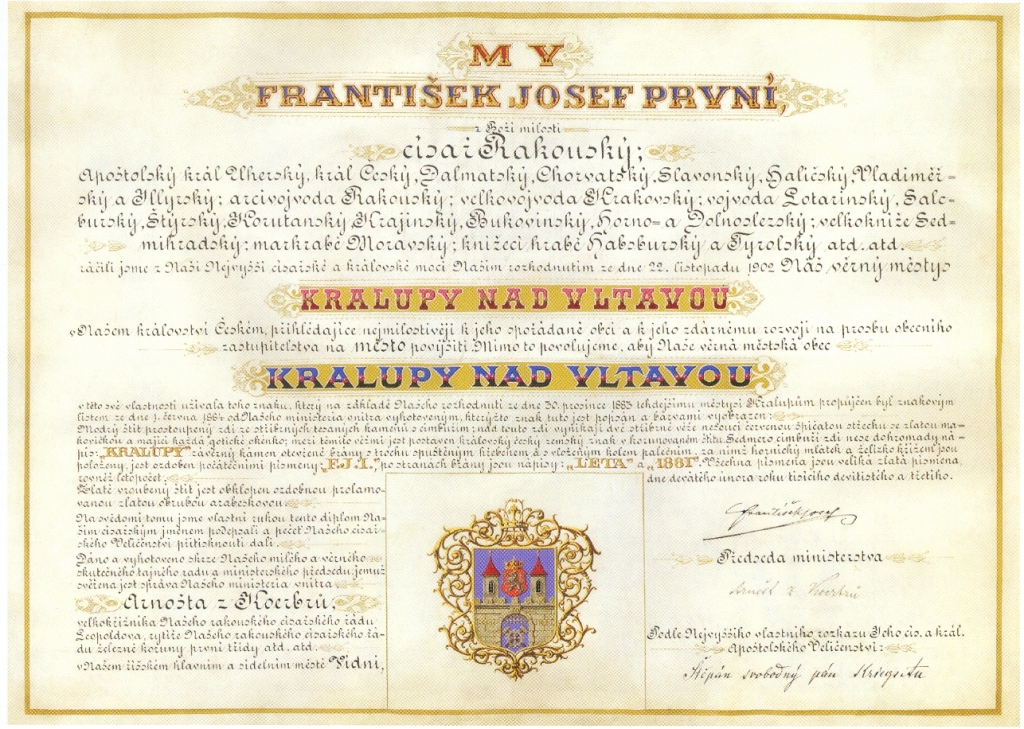 MY
FRANTIŠEK JOSEF PRVNÍ,
z Boží milosti
císař Rakouský;
Apoštolský král Uherský, král Český, Dalmatský, Chorvatský, Slavonský, Haličský, Vladiměř-
ský a Illyrský; arcivojvoda Rakouský; velkovojvoda Krakovský; vojvoda Lotarinský, Salc-
burský, Štýrský, Korutanský, Krajinský, Bukovinský, Horno- a Dolnoslezský; velkokníže Sed-
mihradský; markrabě Moravský; knížecí hrabě Habsburský a Tyrolský atd. atd.
ráčili jsme z Naší Nejvyšší císařské a královské moci Naším rozhodnutím ze dne 22. listopadu 1902 Náš věrný městys
KRALUPY NAD VLTAVOU
v Našem království Českém, přihlédajíce nejmilostivěji k jeho spořádané obci a k jeho zdárnému rozvoji na prosbu obecního
zastupitelstva na město povýšiti. Mimo to povolujeme, aby Naše věrná městská obec
KRALUPY NAD VLTAVOU
v této své vlastnosti užívala toho znaku, který na základě Našeho rozhodnutí ze dne 30. prosince 1883 tehdejšímu městysi Kralupům propůjčen byl znakovým
listem ze dne 9. června 1884 od Našeho ministeria vnitra vyhotoveným, kterýžto znak tuto jest popsán a barvami vyobrazen:
Modrý štít prostoupený zdí ze stříbrných tesaných kamenů s cimbuřím; nad touto zdí vynikají dvě stříbrné věže nesoucí červenou špičatou střechu se zlatou ma-
kovičkou a mající každá gotické okénko; mezi těmito věžmi jest postaven královský český zemský znak v korunovaném štítu. Sedmero cimbuří zdi nese dohromady ná-
pis: "KRALUPY" závěrný kámen otevřené brány s trochu spuštěným hřebenem a s vloženým kolem palečním, za nímž hornický mlátek a želízko křížem jsou
položeny, jest ozdoben počátečními písmeny "F.J.I." po stranách brány jsou nápisy: "LETA" a "1881". Všechna písmena jsou veliká zlatá písmena,
rovněž letopočet.
Zlatě vroubený štít jest obklopen ozdobnou prolamo-
vanou zlatou obrubou arabeskovou.
Na svědomí tomu jsme vlastní rukou tento diplom Na-
ším císařským jménem podepsali a pečeť Našeho císař-
ského Veličenství přitisknouti dali.
Dáno a vyhotoveno skrze Našeho milého a věrného
skutečného tajného radu a ministerského předsedu, jemuž
svěřena jest správa Našeho ministeria vnitra
Arnošta z Koerbrů,
velkokřižníka Našeho rakouského císařského řádu
Leopoldova, rytíře Našeho rakouského císařského řá-
du železné koruny první třídy atd. atd.
v Našem říšském hlavním a sídelním městě Vídni,
dne devátého února roku tisícího devítistého a třetího.
František Josef
Předseda ministerstva
Arnošt z Koerbrů
Podle Nejvyššího vlastního rozkazu Jeho cís. a král.
Apoštolského Veličenství:
Štěpán svobodný pán